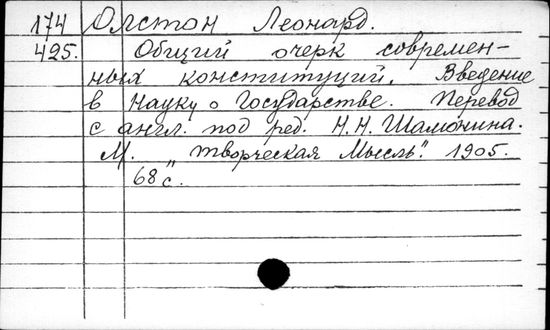 174 Олстон Леонард.
425. Общий очерк современ-
ных конституций. Введение
в Науку о Государстве. Перевод
с англ. под ред. Н.Н. Шамонина.
М. „Творческая Мысль". 1905.
68 с.